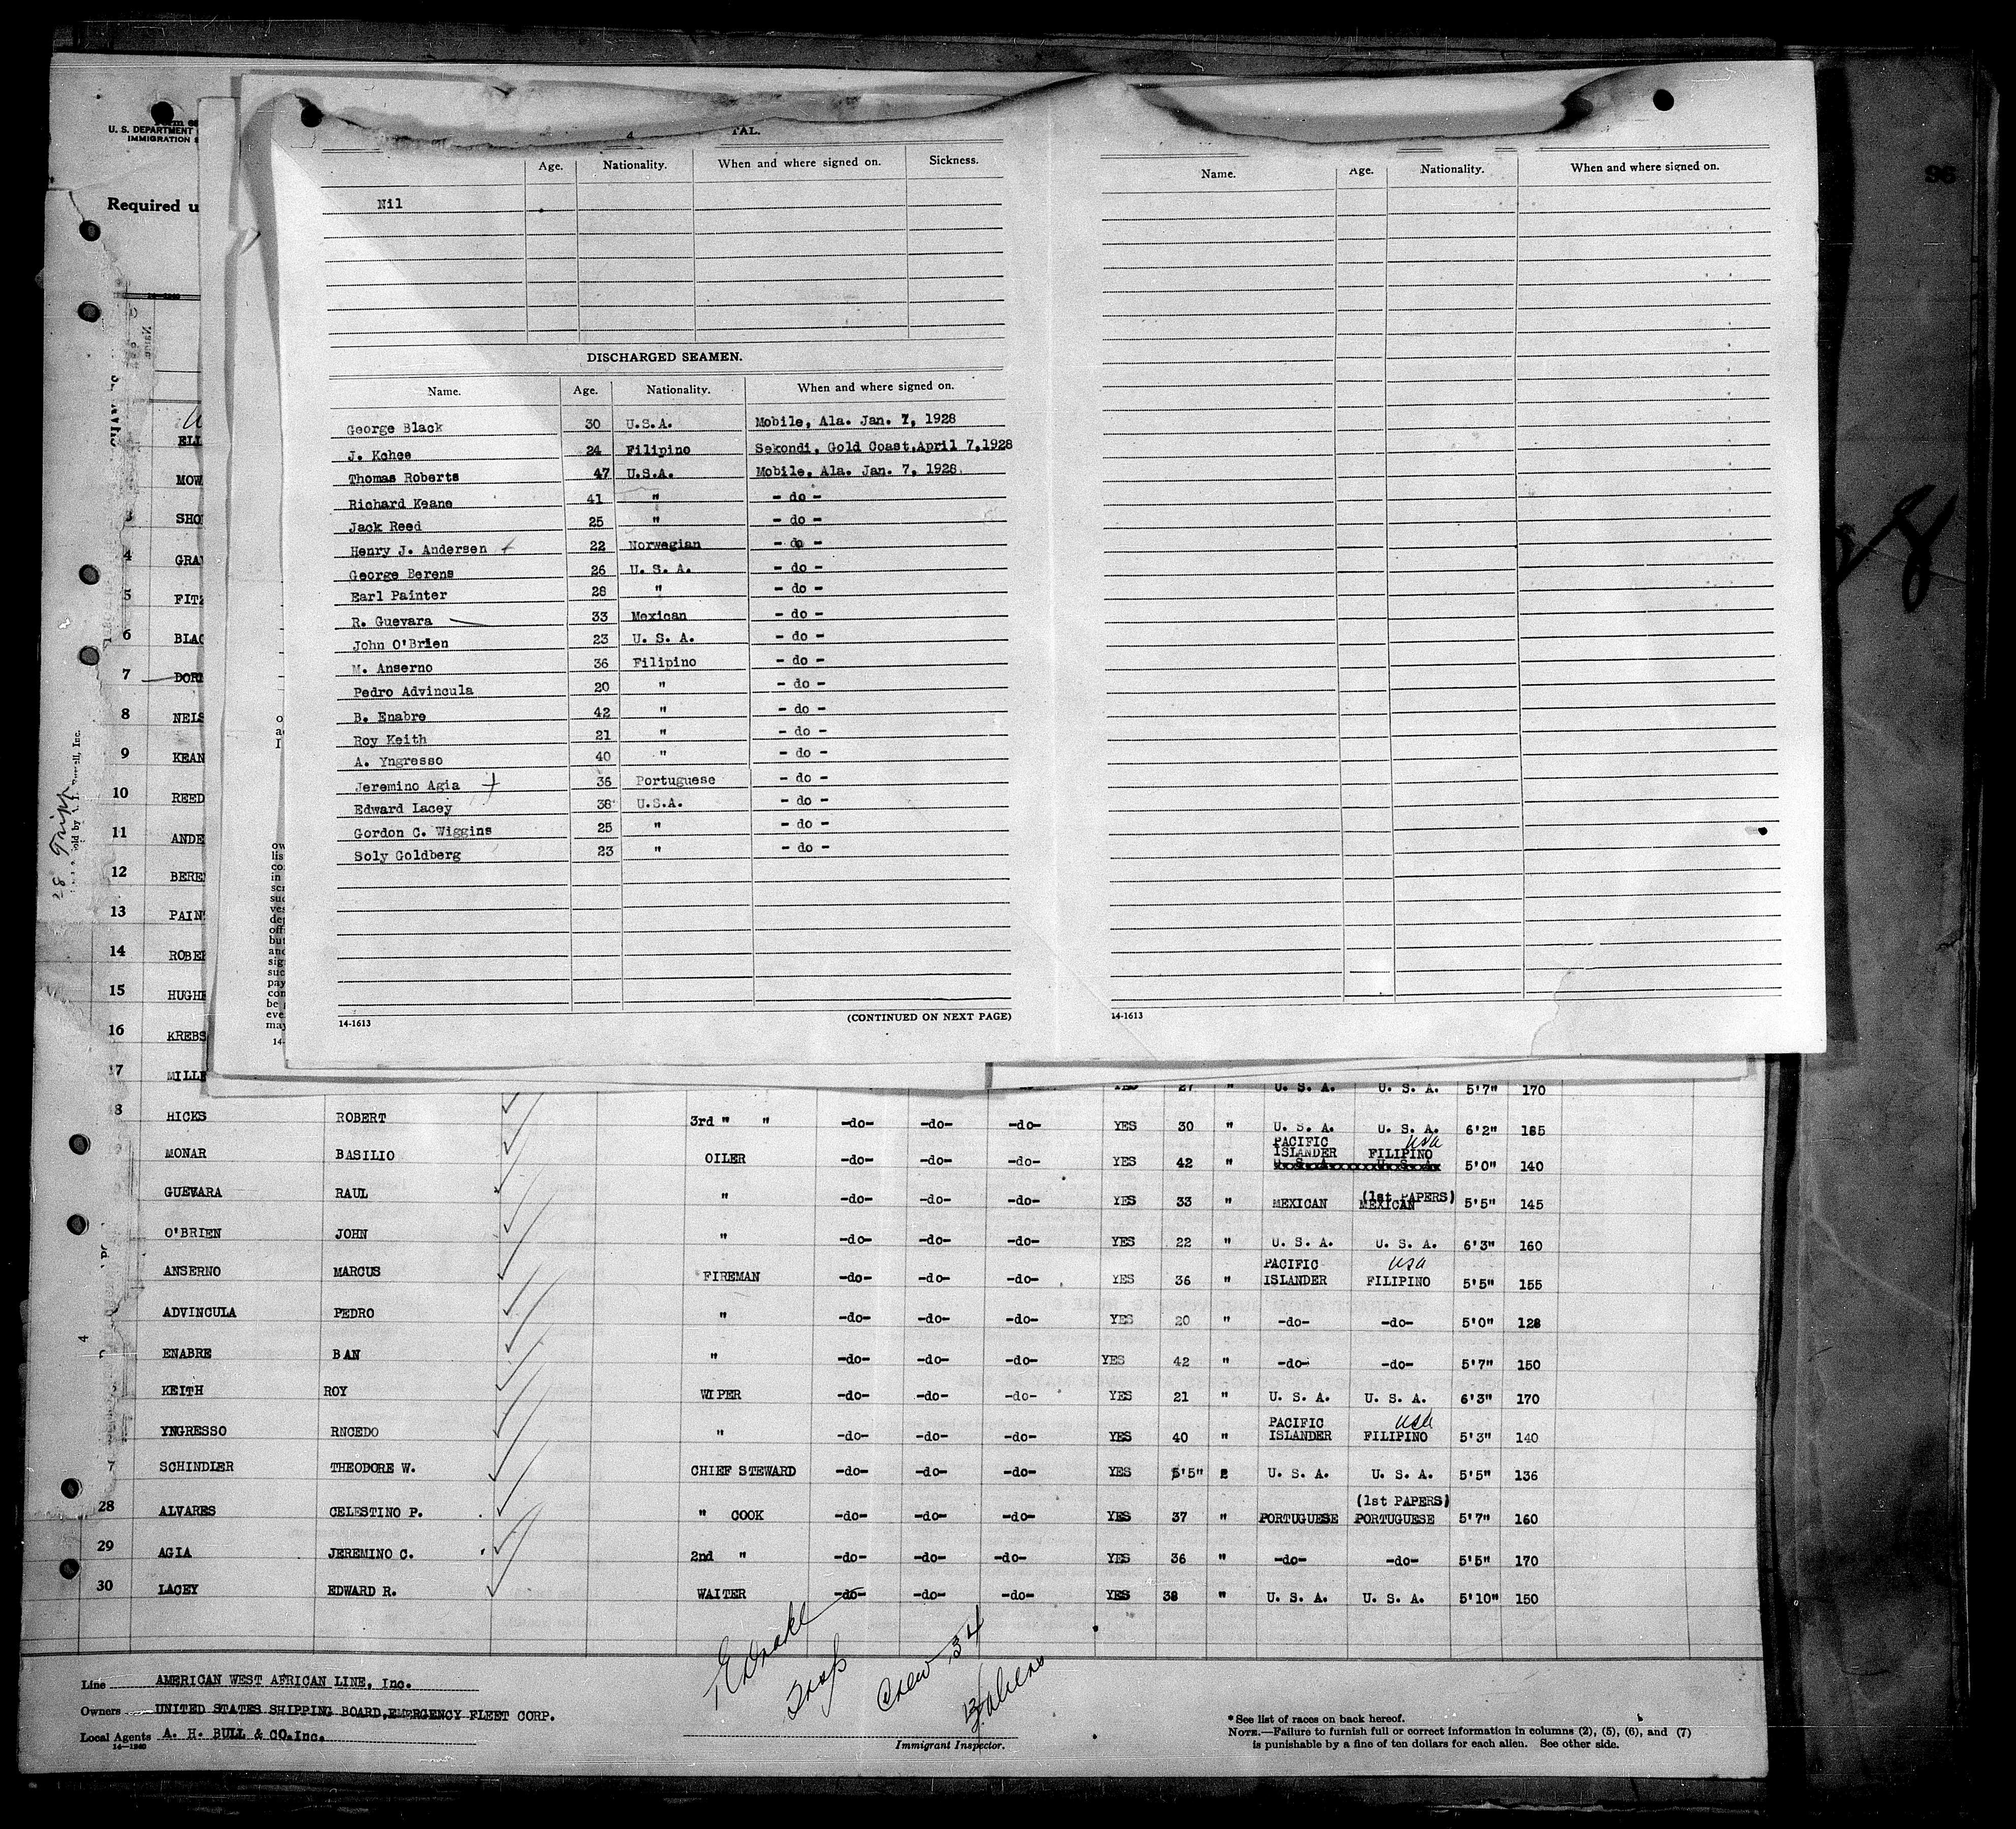 U. S. DEPARTMENT
IMMIGRATION
Required u
TAL.
Age. Nationality. When and where signed on. Sickness.
Nil
DISCHARGED SEAMEN.
Name. Age. Nationality. When and where signed on.
George Black 30 U.S.A. Mobile, Ala. Jan. 7, 1928
J. Kohee 24 Filipino Sekondi, Gold Coast, April 7, 1928
Thomas Roberts 47 U.S.A. Mobile, Ala. Jan. 7, 1928.
Richard Keane 41 " - do -
Jack Reed 25 " - do -
Henry J. Andersen 22 Norwegian - do -
George Berens 26 U. S. A. - do -
Earl Painter 28 " - do -
R. Guevara 33 Mexican - do -
John O'Brien 23 U. S. A. - do -
M. Anserno 36 Filipino - do -
Pedro Advincula 20 " - do -
B. Enabre 42 " - do -
Roy Keith 21 " - do -
A. Yngresso 40 " - do -
Jeremino Agia 36 Portuguese - do -
Edward Lacey 38 U.S.A. - do -
Gordon C. Wiggins 25 " - do -
Soly Goldberg 23 " - do -
14-1613 (CONTINUED ON NEXT PAGE)
Name. Age. Nationality. When and where signed on.
14-1613
96
ELL
MOW
3 SHO
4 GRA
5 FIT
6 BLAC
7 DOR
8 NELS
9 KEAN
10 REED
11 ANDE
12 BERE
13 PAIN
14 ROBE
15 HUGH
16 KREBS
17 MILLE 27 " U. S. A. U. S. A. 5'7" 170
8 HICKS ROBERT 3rd " " -do- -do- -do- YES 30 " U. S. A. U. S. A. 6'2" 185
MONAR BASILIO OILER -do- -do- -do- YES 42 " PACIFIC ISLANDER FILIPINO usa 5'0" 140
GUEVARA RAUL " -do- -do- -do- YES 33 " MEXICAN (1st PAPERS) MEXICAN 5'5" 145
O'BRIEN JOHN " -do- -do- -do- YES 22 " U. S. A. U. S. A. 6'3" 160
ANSERNO MARCUS FIREMAN -do- -do- -do- YES 36 " PACIFIC ISLANDER usa FILIPINO 5'5" 155
ADVINCULA PEDRO " -do- -do- -do- YES 20 " -do- -do- 5'0" 128
ENABRE BAN " -do- -do- -do- YES 42 " -do- -do- 5'7" 150
KEITH ROY WIPER -do- -do- -do- YES 21 " U. S. A. U. S. A. 6'3" 170
YNGRESSO RNCEDO " -do- -do- -do- YES 40 " PACIFIC ISLANDER usa FILIPINO 5'3" 140
7 SCHINDLER THEODORE W. CHIEF STEWARD -do- -do- -do- YES 5'5" U. S. A. U. S. A. 5'5" 136
28 ALVARES CELESTINO P. " COOK -do- -do- -do- YES 37 " PORTUGUESE (1st PAPERS) PORTUGUESE 5'7" 160
29 AGIA JEREMINO C. 2nd " -do- -do- -do- YES 36 " -do- -do- 5'5" 170
30 LACEY EDWARD R. WAITER -do- -do- -do- YES 38 " U. S. A. U. S. A. 5'10" 150
Crew 34
Line AMERICAN WEST AFRICAN LINE, Inc.
Owners UNITED STATES SHIPPING BOARD, EMERGENCY FLEET CORP.
Local Agents A. H. BULL & CO. Inc.
Immigrant Inspector.
* See list of races on back hereof.
NOTE.—Failure to furnish full or correct information in columns (2), (5), (6), and (7)
is punishable by a fine of ten dollars for each alien. See other side.